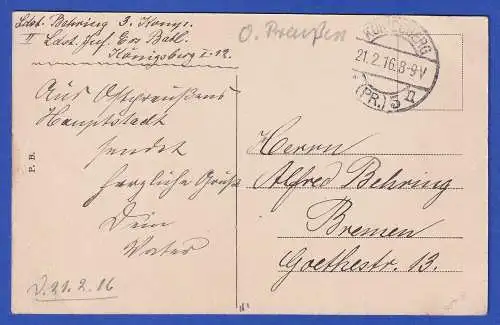 Ldst. Behring 3. Komp.
II Ldst. Inf. Ers. Batl.
Königsberg I. 12.
O. Preußen
KÖNIGSBERG
21.2.16. 8-9 V
(PR.) 5 n
Aus Ostpreußens
Hauptstadt
sendet
herzliche Grüße
Dein
Vater
Herrn
Alfred Behring
Bremen
Goethestr. 13.
P. B.
D. 21. 2. 16